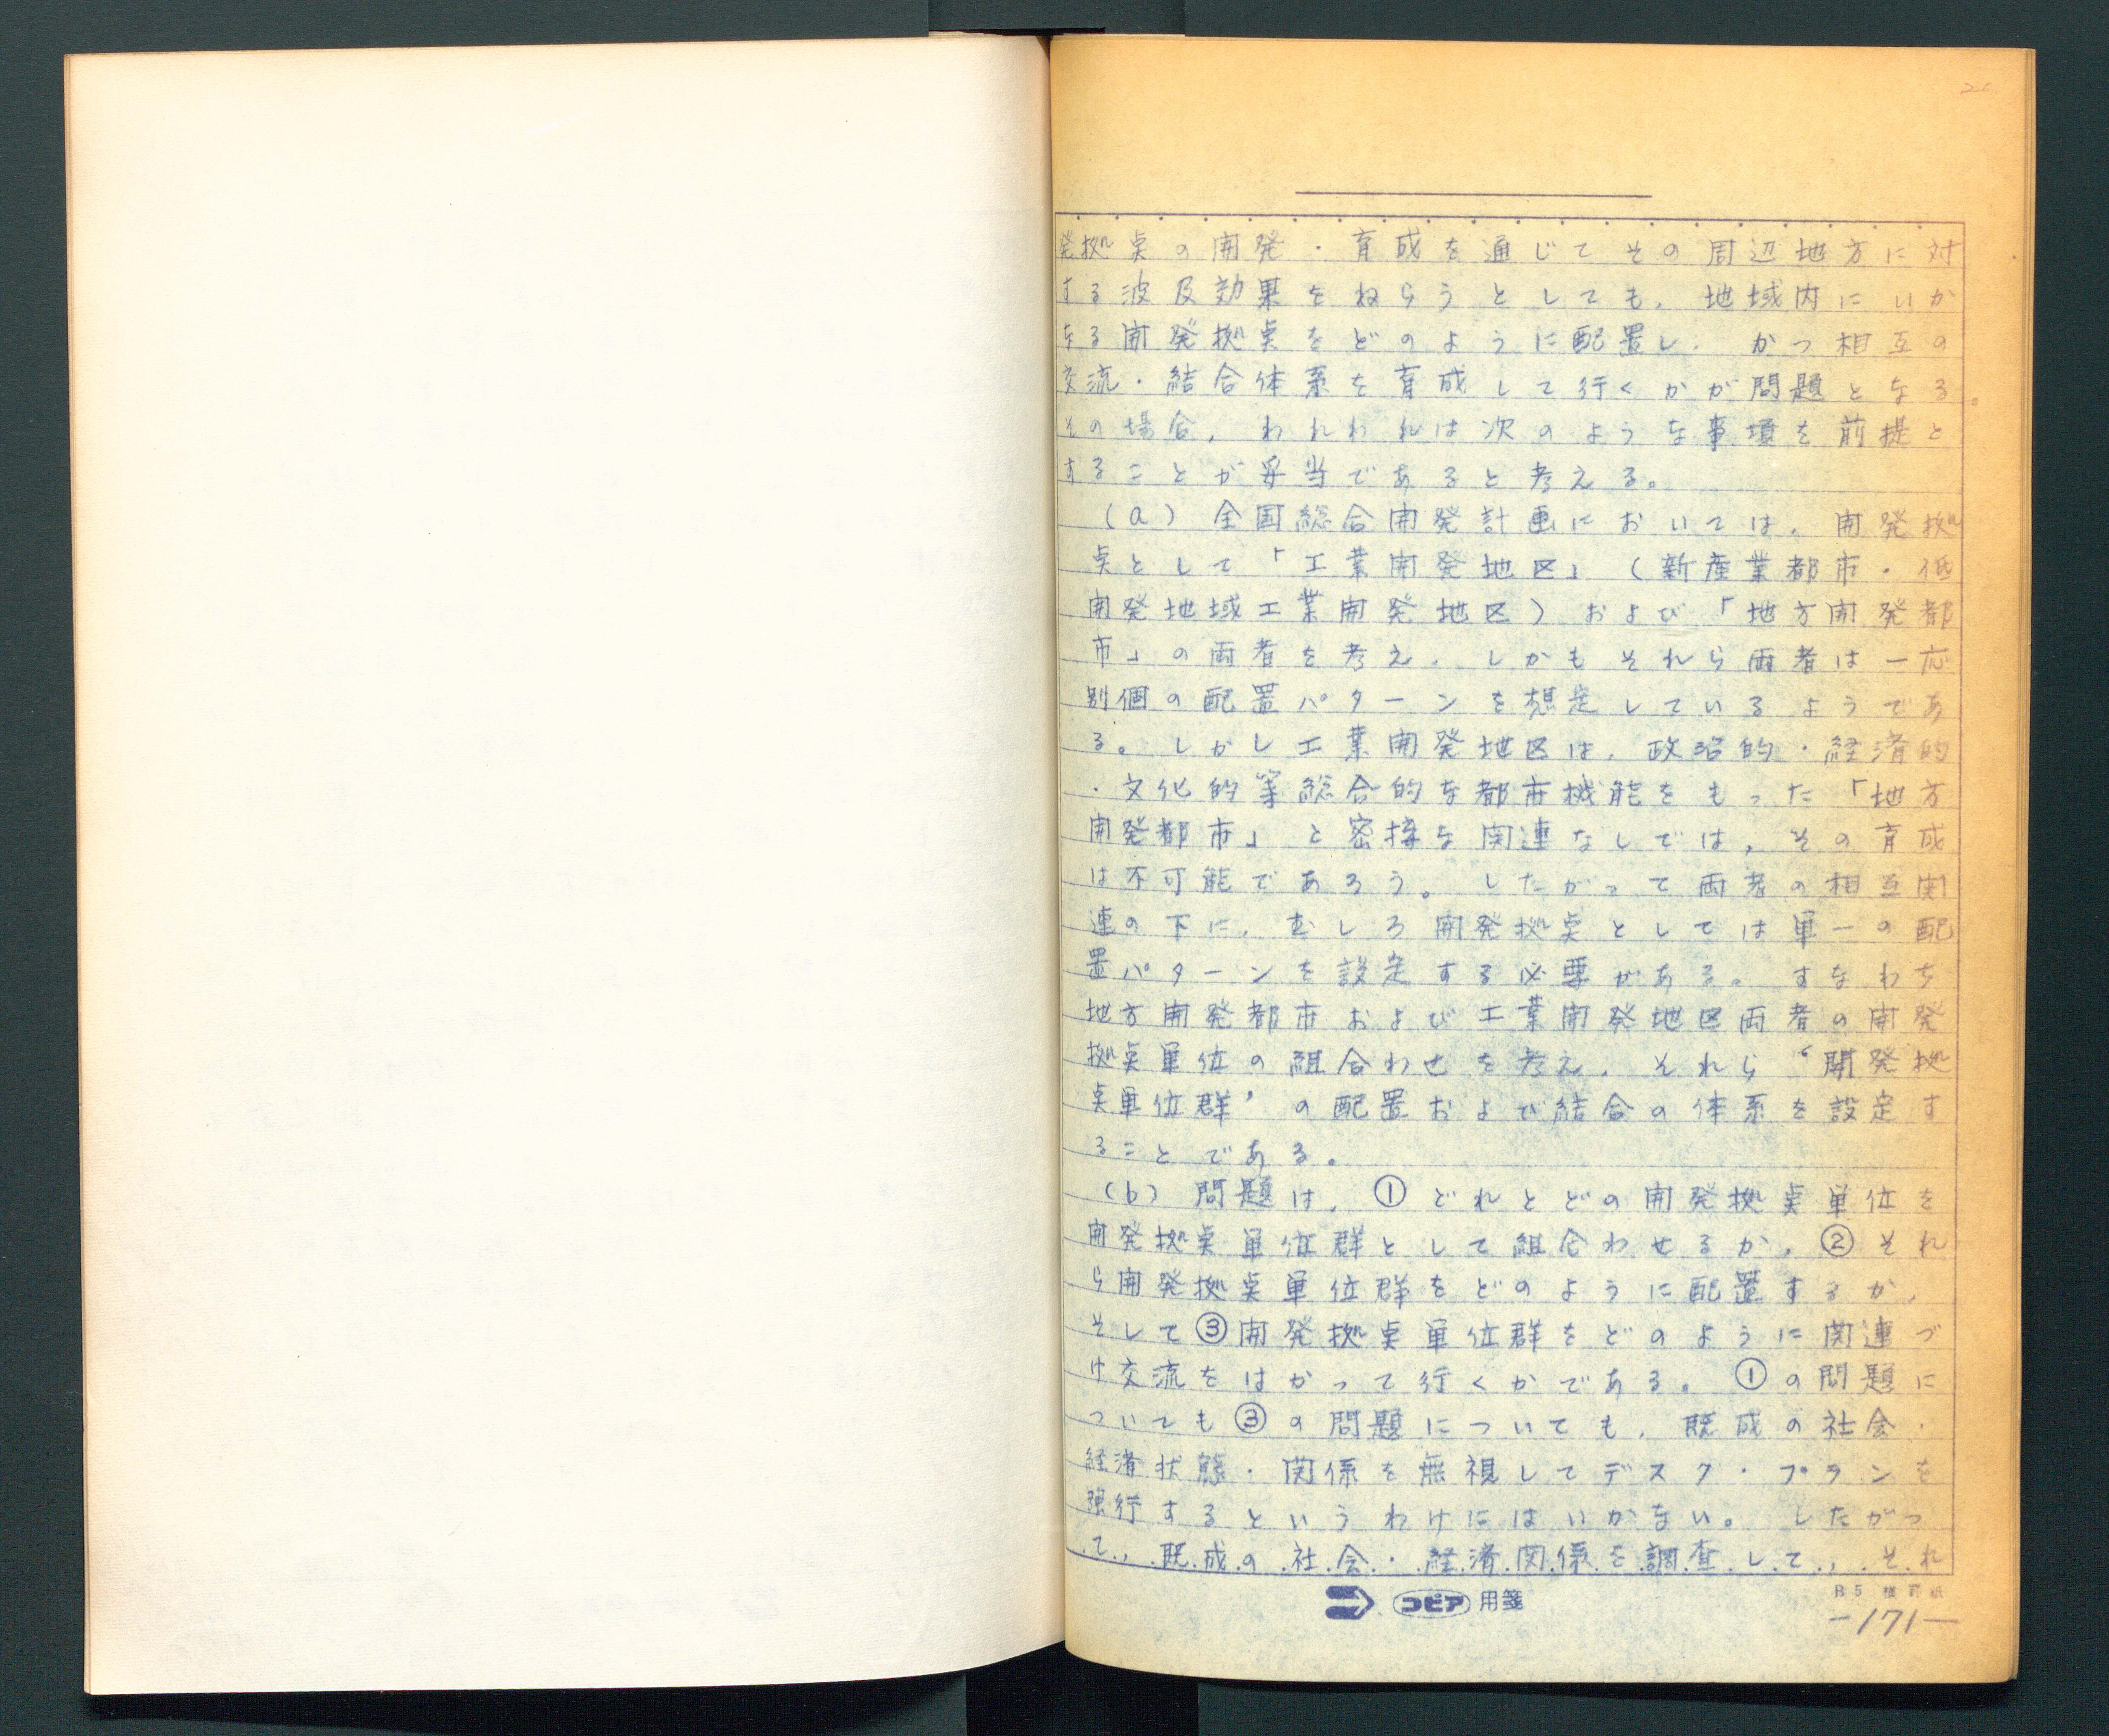 20
発拠点の開発・育成を通じてその周辺地方に対
する波及効果をねらうとしても，地域内にいか
なる開発拠点をどのように配置し，かつ相互の
交流・結合体系を育成して行くかが問題となる。
その場合，われわれは次のような事項を前提と
することが妥当であると考える。
(a) 全国総合開発計画においては，開発拠
点として「工業開発地区」（新産業都市・低
開発地域工業開発地区）および「地方開発都
市」の両者を考え，しかもそれら両者は一応
別個の配置パターンを想定しているようであ
る。しかし工業開発地区は，政治的・経済的
・文化的等総合的な都市機能をもった「地方
開発都市」と密接な関連なしでは，その育成
は不可能であろう。したがって両者の相互関
連の下に，むしろ開発拠点としては単一の配
置パターンを設定する必要がある。すなわち
地方開発都市および工業開発地区両者の開発
拠点単位の組合わせを考え，それら‘開発拠
点単位群’の配置および結合の体系を設定す
ることである。
(b) 問題は，①どれとどの開発拠点単位を
開発拠点単位群として組合わせるか，②それ
ら開発拠点単位群をどのように配置するか，
そして③開発拠点単位群をどのように関連づ
け交流をはかって行くかである。①の問題に
ついても③の問題についても，既成の社会・
経済状態・関係を無視してデスク・プランを
強行するというわけにはいかない。したがっ
て，既成の社会・経済関係を調査して，それ
コピア用箋
B5 横罫紙
-171-